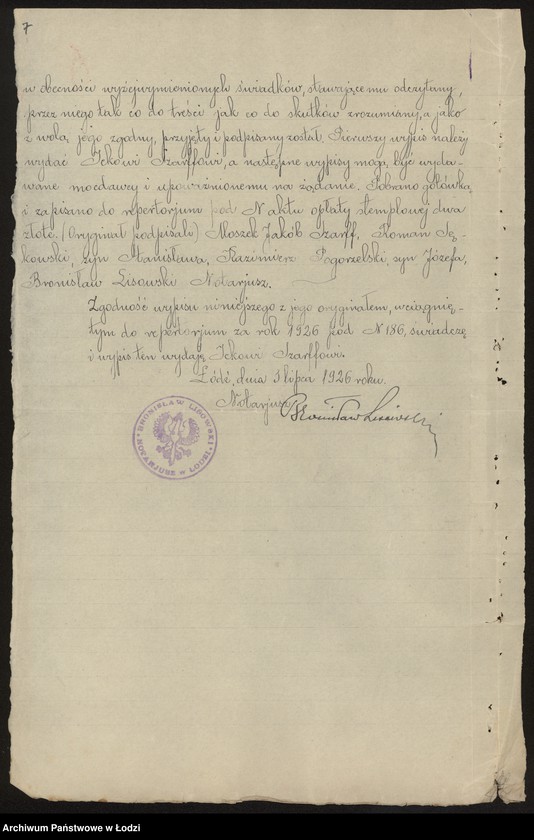 7
w obecności wyżejwymienionych świadków, stawającemu odczytany,
przez niego tak co do treści jak co do skutków zrozumiany, a jako
z wolą jego zgodny, przyjęty i podpisany został. Pierwszy wypis należy
wydać Ickowi Szarffowi, a następne wypisy mogą być wyda-
wane mocodawcy i upoważnionemu na żądanie. Pobrano gotówką
i zapisano do repertorjum pod N aktu opłaty stemplowej dwa
złote. (Oryginał podpisali) Moszek Jakób Szarff, Roman
kowski, syn Stanisława, Kazimierz Pogorzelski, syn Józefa,
Bronisław Lisowski Notarjusz.
Zgodność wypisu niniejszego z jego oryginałem, wciągnię-
tym do repertorjum za rok 1926 pod N 186, świadczę
i wypis ten wydaję Ickowi Szarffowi.
Łódź, dnia 3 lipca 1926 roku.
Notarjusz Bronisław Lisowski
BRONISŁAW LISOWSKI
NOTARJUSZ w ŁODZI
Archiwum Państwowe w Łodzi